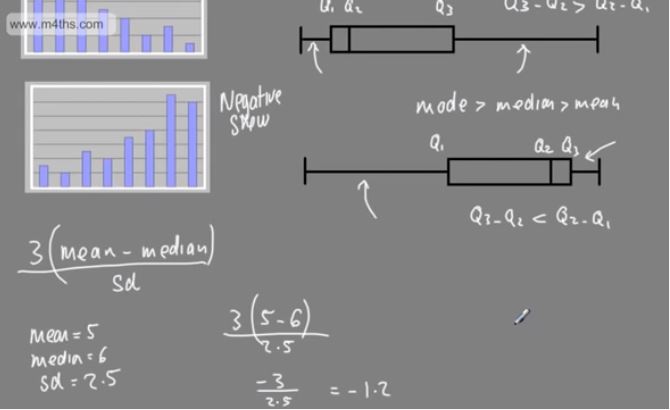 www.m4ths.com
Q₁ Q₂ Q₃ Q₃-Q₂ > Q₂-Q₁
Negative
skew
mode > median > mean
Q₁ Q₂ Q₃
Q₃-Q₂ < Q₂-Q₁
3(mean - median)
sd
mean = 5
median = 6
sd = 2.5
3(5-6)
2.5
-3
2.5
= -1.2